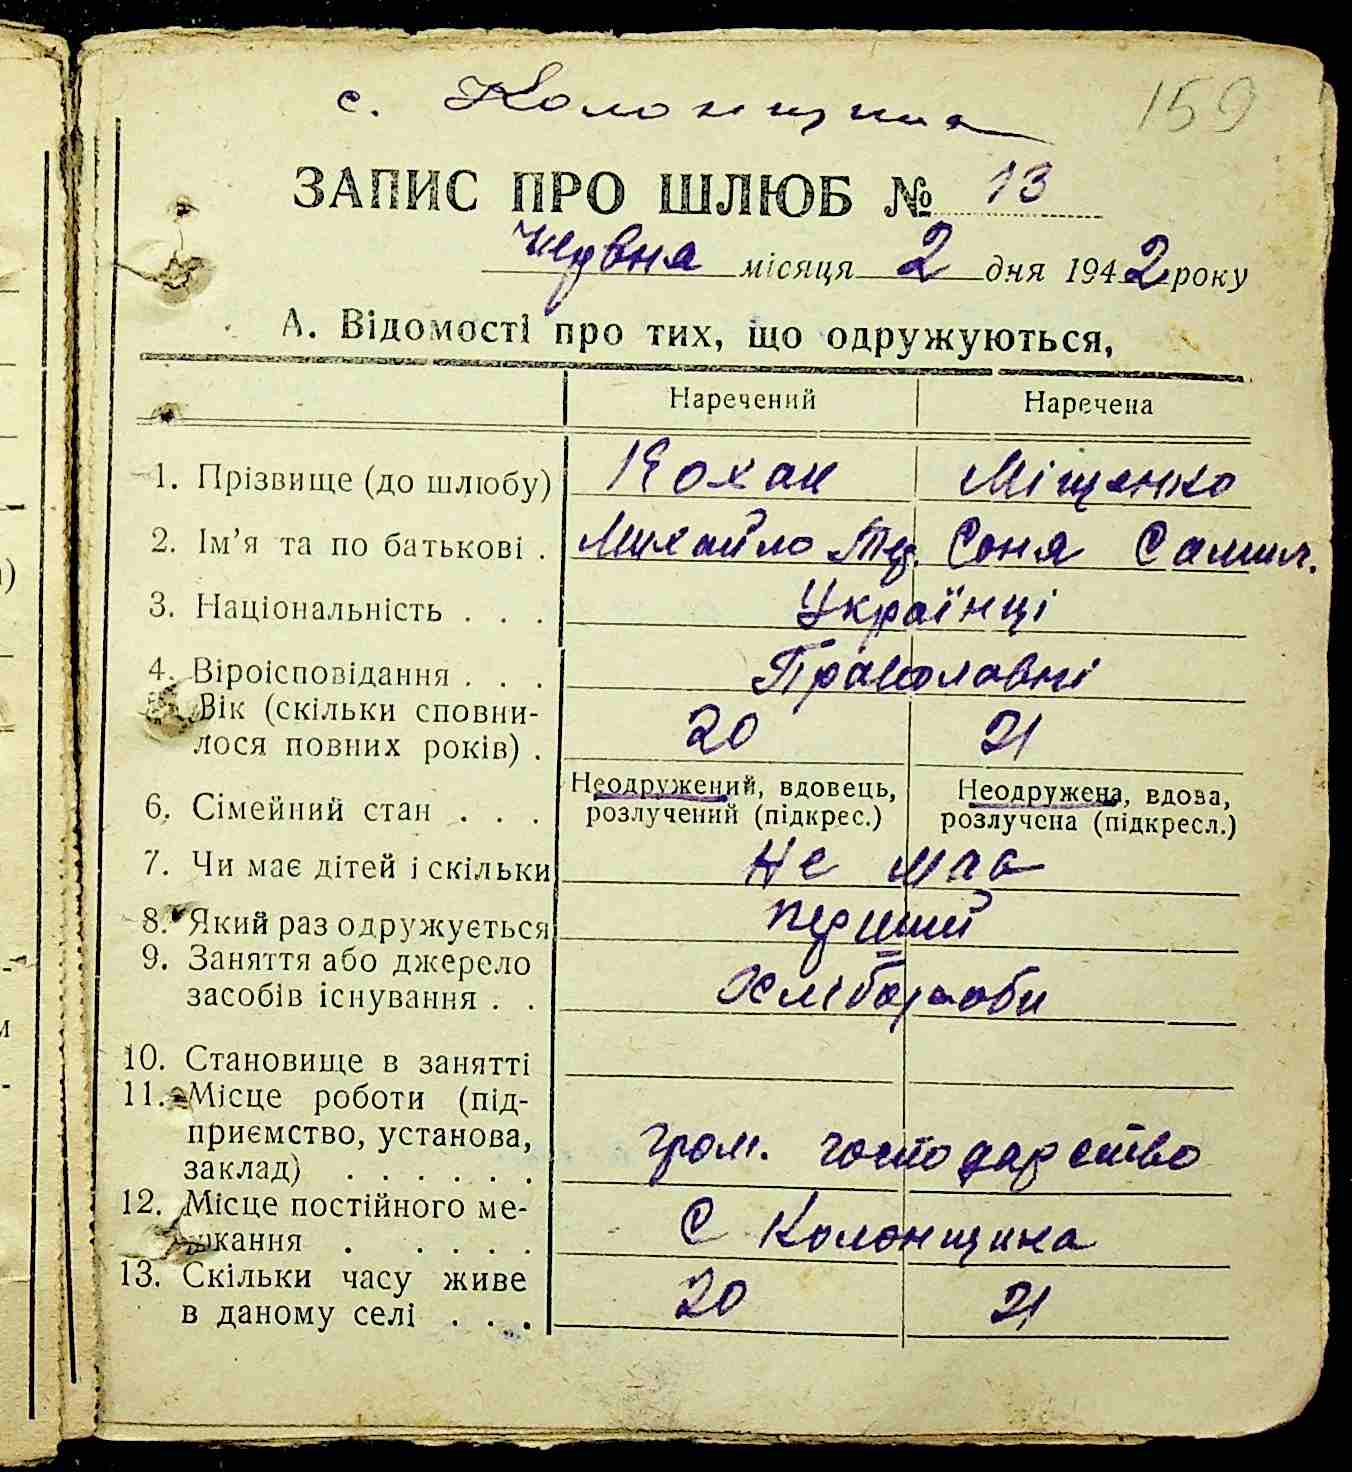 159
с. Колонщина
ЗАПИС ПРО ШЛЮБ № 13
Червня місяця 2 дня 1942 року
А. Відомості про тих, що одружуються,
Наречений Наречена
1. Прізвище (до шлюбу) Кохан Міщенко
2. Ім'я та по батькові . Михайло Тер. Соня Самил.
3. Національність . . . Українці
4. Віроісповідання . . . Православні
Вік (скільки сповни-
лося повних років) . 20 21
6. Сімейний стан . . . Неодружений, вдовець, Неодружена, вдова,
розлучений (підкрес.) розлучена (підкресл.)
7. Чи має дітей і скільки Не має
8. Який раз одружується перший
9. Заняття або джерело
засобів існування . . Хлібороби
10. Становище в занятті
11. Місце роботи (під-
приємство, установа,
заклад) . . . . . . гром. господарство
12. Місце постійного ме-
шкання . . . . . С Колонщина
13. Скільки часу живе
в даному селі . . . 20 21